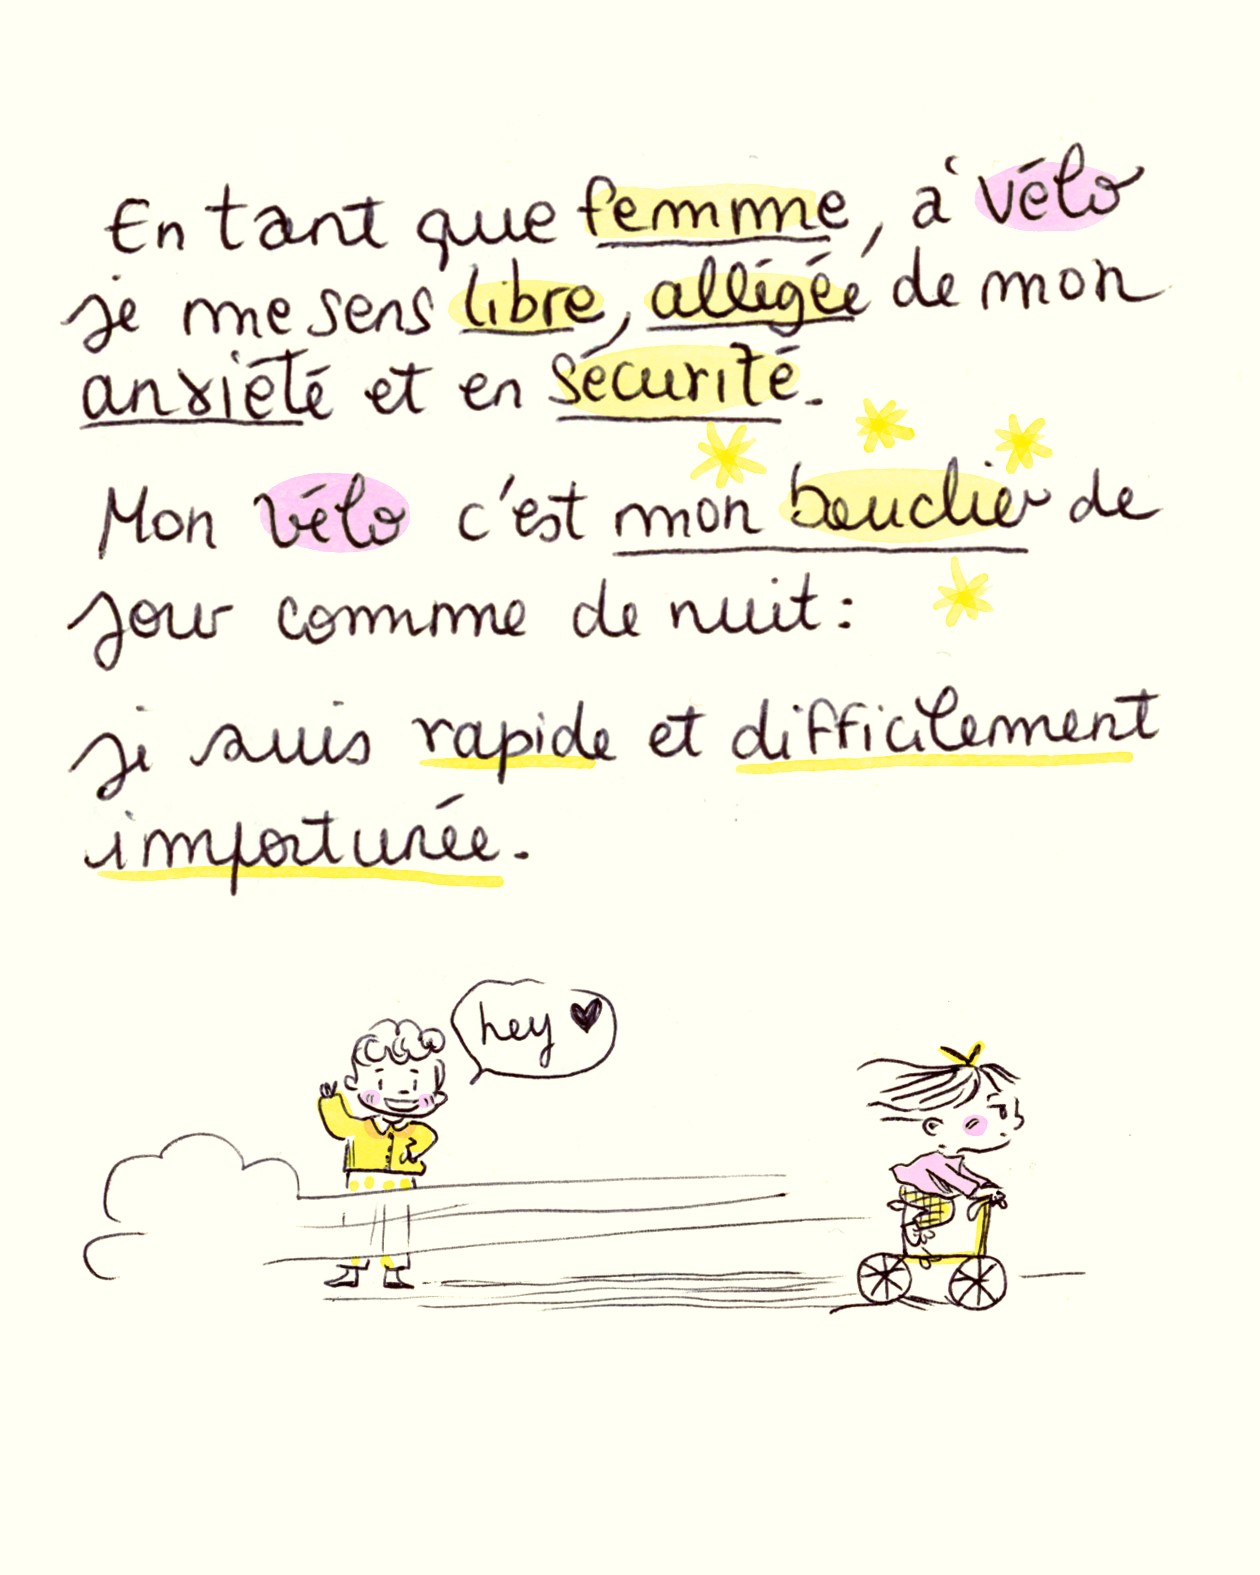 En tant que femme, à vélo
je me sens libre, allégée de mon
anxiété et en sécurité.
Mon vélo c'est mon bouclier de
jour comme de nuit :
je suis rapide et difficilement
importunée.
hey ♥